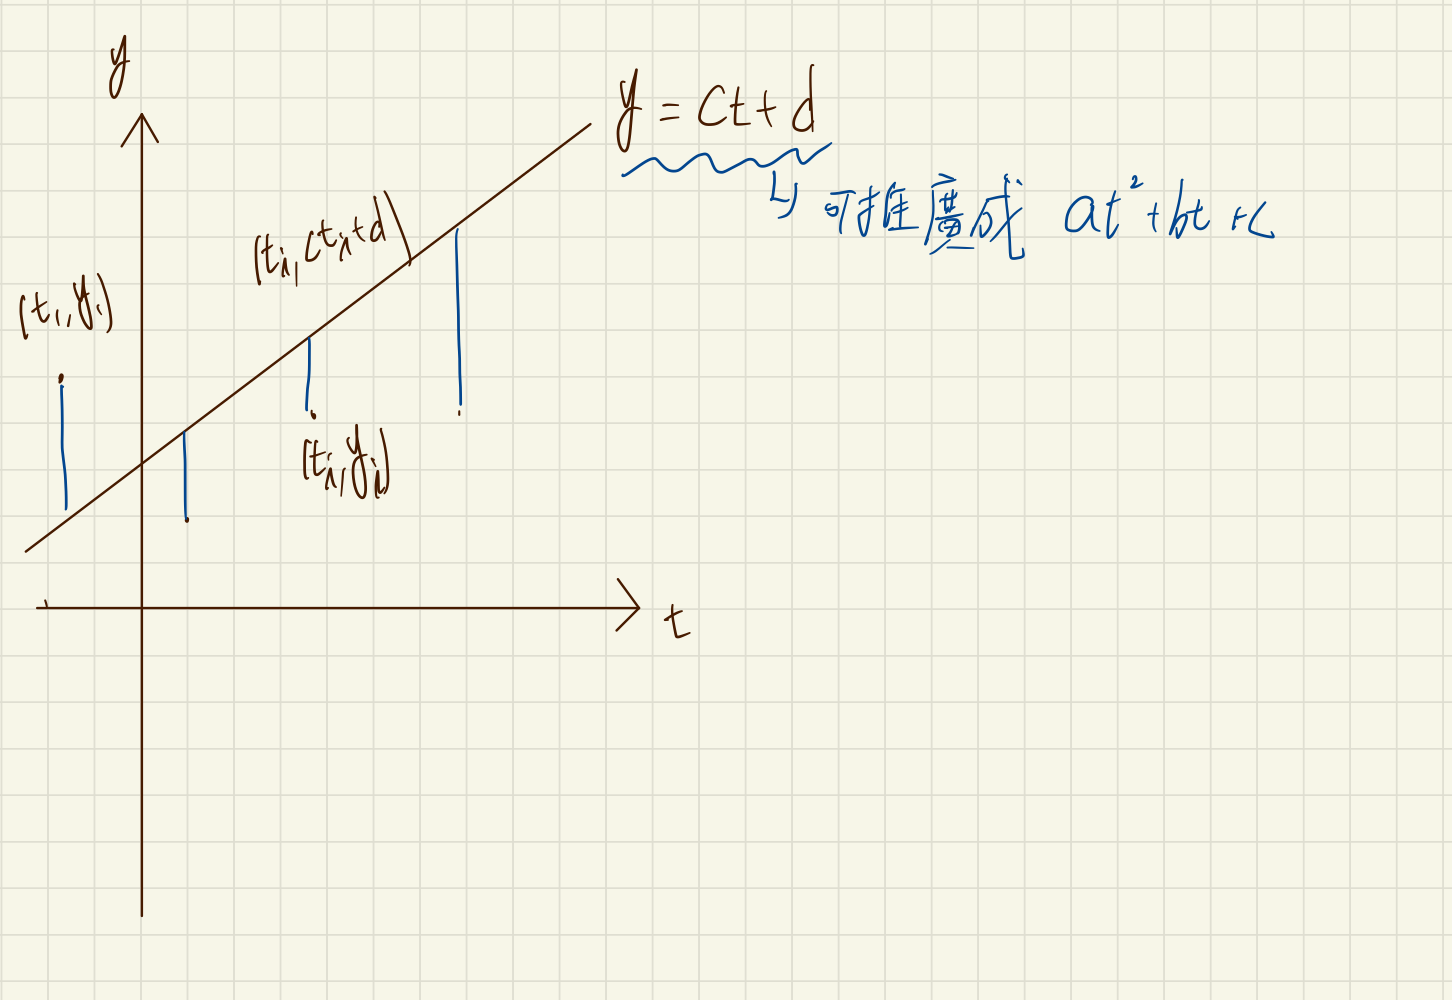 y
y = ct + d
↳ 可推廣成 at² + bt + c
(tᵢ, ctᵢ + d)
(t₁, y₁)
(tᵢ, yᵢ)
t